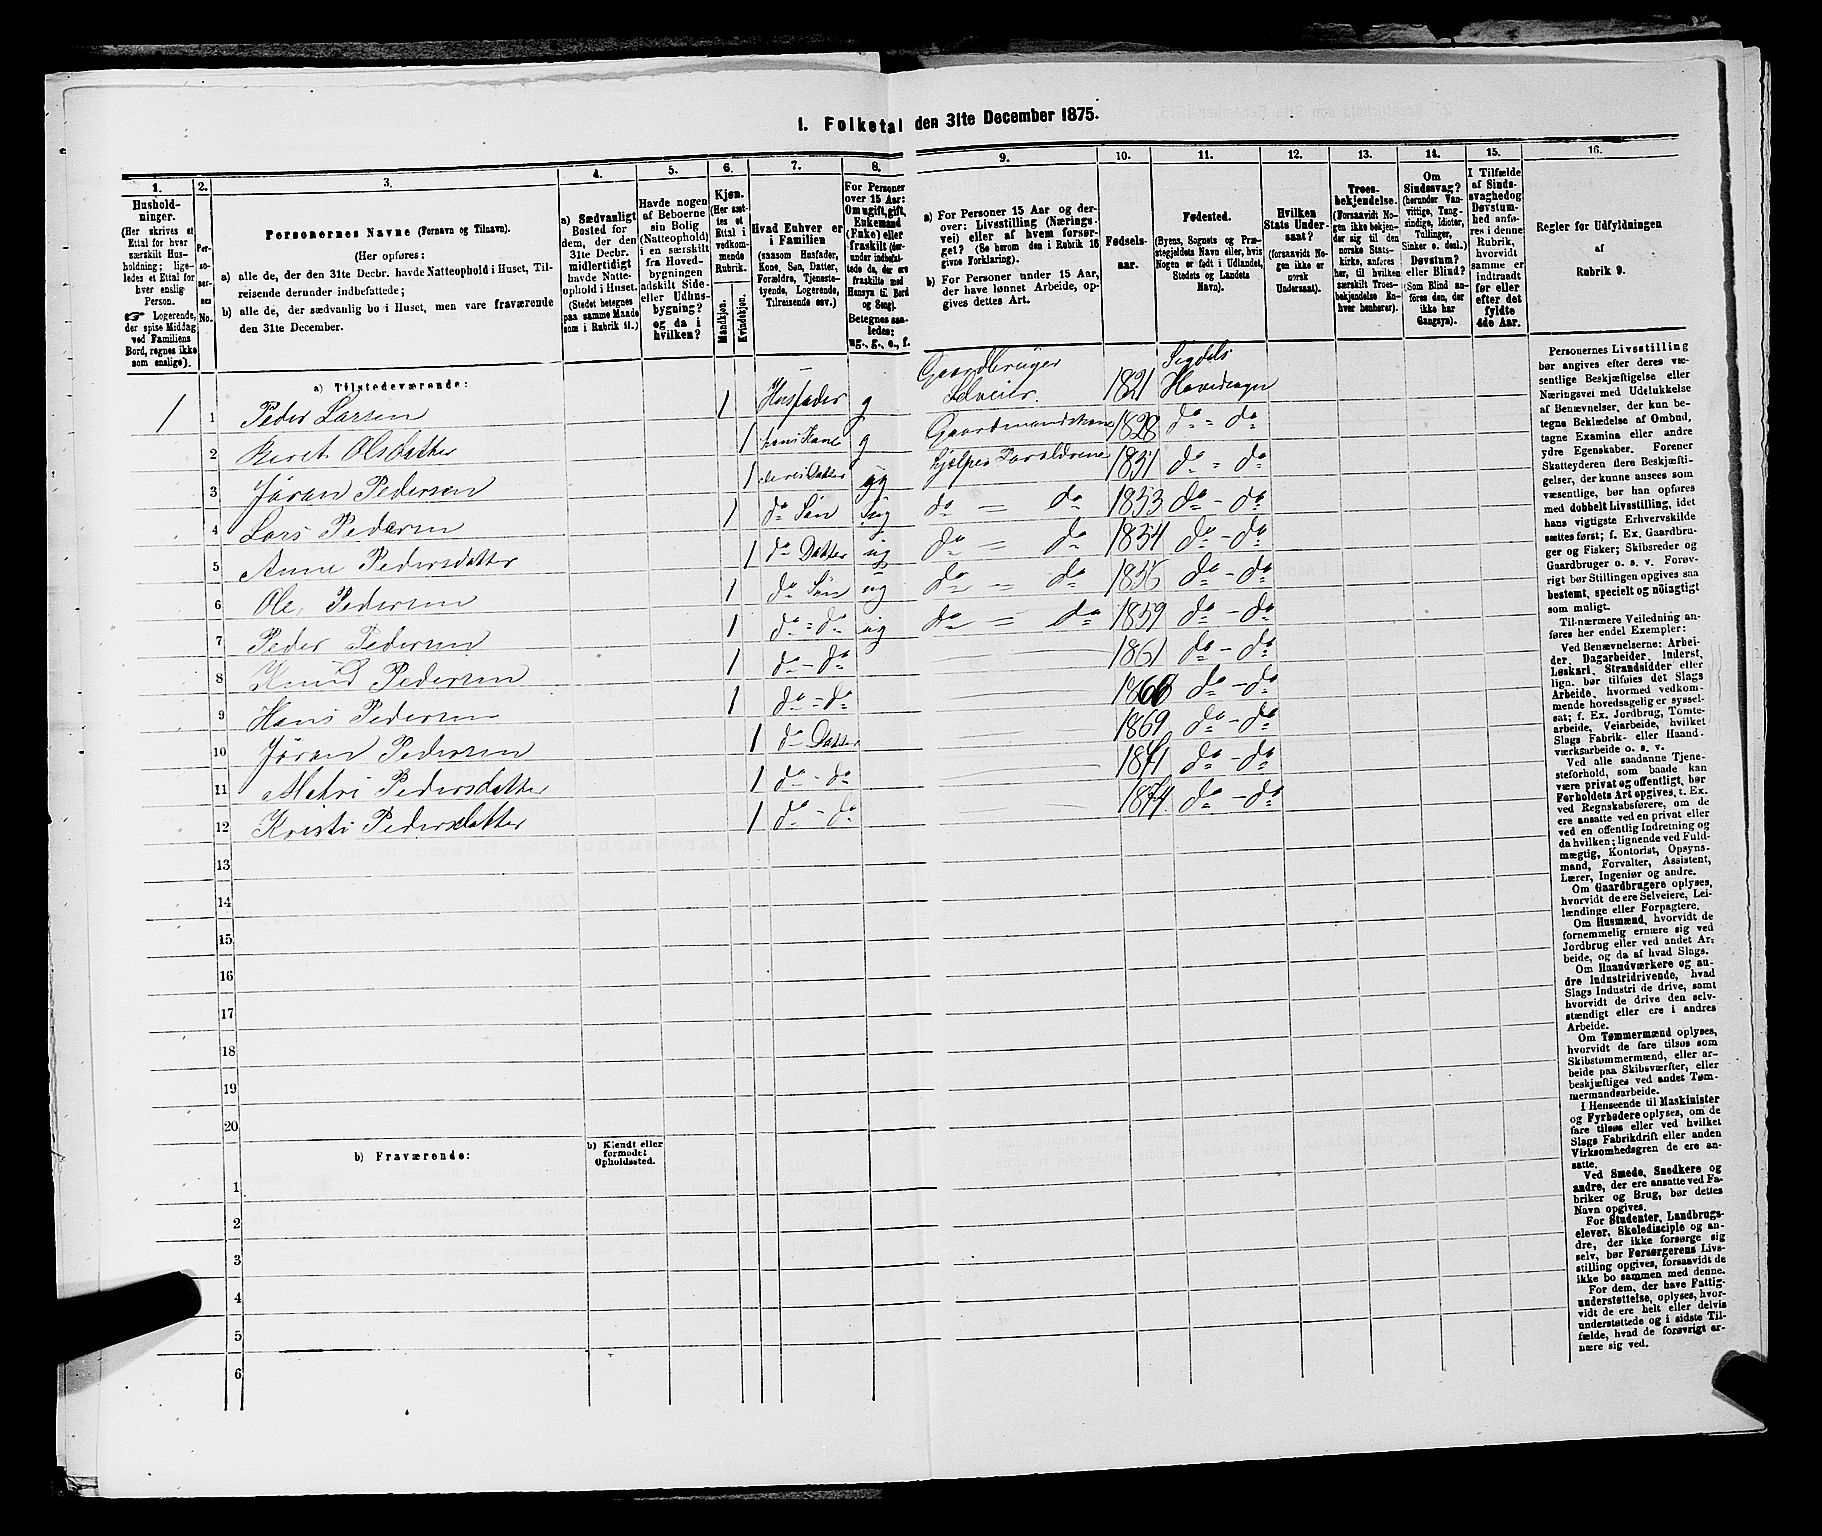 1. Folketal den 31te December 1875.
1. 2. 3. 4. 5. 6. 7. 8. 9. 10. 11. 12. 13. 14. 15. 16.
Hushold-
ninger.
(Her skrives et
Ettal for hver
særskilt Hus-
holdning; lige-
ledes et Ettal for
hver enslig
Person.
☞ Logerende,
der spise Middag
ved Familiens
Bord, regnes ikke
som enslige).
Per-
so-
ner-
nes
No.
Personernes Navne (Fornavn og Tilnavn).
(Her opføres:
a) alle de, der den 31te Decbr. havde Natteophold i Huset, Til-
reisende derunder indbefattede;
b) alle de, der sædvanlig bo i Huset, men vare fraværende
den 31te December.
a) Sædvanligt
Bosted for
dem, der den
31te Decbr.
midlertidigt
havde Natte-
ophold i Huset.
(Stedet betegnes
paa samme Maade
som i Rubrik 11.)
Havde nogen
af Beboerne
sin Bolig
(Natteophold)
i en særskilt
fra Hoved-
bygningen
adskilt Side-
eller Udhus-
bygning?
og da i
hvilken?
Kjøn.
(Her sæt-
tes et
Ettal i
vedkom-
mende
Rubrik.
Mandkjøn.
Kvindekjøn.
Hvad Enhver er
i Familien
(saasom Husfader,
Kone, Søn, Datter,
Forældre, Tjeneste-
tyende, Logerende,
Tilreisende osv.)
For Personer
over 15 Aar:
Om ugift, gift,
Enkemand
(Enke) eller
fraskilt (der-
under indbefat-
tede da, der ere
fraskilte med
Hensyn til Bord
og Seng).
Betegnes saa-
ledes:
ug., g., e., f.
a) For Personer 15 Aar og der-
over: Livsstilling (Nærings-
vei) eller af hvem forsør-
get? (Se herom den i Rubrik 16
givne Forklaring).
b) For Personer under 15 Aar,
der have lønnet Arbeide, op-
gives dettes Art.
Fødsels-
aar.
Fødested.
(Byens, Sognets og Præ-
stegjeldets Navn eller, hvis
Nogen er født i Udlandet,
Stedets og Landets
Navn).
Hvilken
Stats Under-
saat?
(forsaavidt No-
gen ikke er
norsk
Undersaat).
Troes-
bekjendelse.
(Forsaavidt No-
gen ikke bekjen-
der sig til den
norske Stats-
kirke, anføres
her, til hvilken
særskilt Troes-
bekjendelse En-
hver henhører).
Om
Sindssvag?
(herunder Van-
vittige, Tung-
sindige, Idioter,
Tullinger,
Sinker o. desl.)
Døvstum?
eller Blind?
(Som Blind an-
føres den, der
ikke har
Gangsyn).
I Tilfælde
af Sinds-
svaghed og
Døvstum-
hed anfø-
res i denne
Rubrik,
hvorvidt
samme er
indtraadt
før eller
efter det
fyldte
4de Aar.
Regler for Udfyldningen
af
Rubrik 9.
a) Tilstedeværende:
Gaardbruger Sigdals
1 1 Peder Larsen 1 Husfader g Selveier. 1821 Hovedsogn
2 Beret Olsdatter 1 hans Kone g Gaardmandskone 1828 do = do
3 Jøran Pedersen 1 deres Datter ug hjælper Forældrene 1851 do = do
4 Lars Pedersen 1 do Søn ug do = do 1853 do - do
5 Anne Pedersdatter 1 do Datter ug do = do 1854 do - do
6 Ole Pedersen 1 do Søn ug do = do 1856 do - do
7 Peder Pedersen 1 do = do ug do = do 1859 do - do
8 Knud Pedersen 1 do - do 1861 do - do
9 Hans Pedersen 1 do = do do - do
10 Jøran Pedersen 1 do Datter 1869 do - do
11 Pedersdatter 1 do - do 1871 do - do
12 Kristi Pedersdatter 1 do - do 1874 do - do
13
14
15
16
17
18
19
20
b) Fraværende:
b) Kjendt eller
formodet
Opholdssted.
1
2
3
4
5
6
Personernes Livsstilling
bør angives efter deres væ-
sentlige Beskjæftigelse eller
Næringsvei med Udelukkelse
af Benævnelser, der kun be-
tegne Beklædelse af Ombud,
tagne Examina eller andre
ydre Egenskaber. Forener
Skatteyderen flere Beskjæfti-
gelser, der kunne ansees som
væsentlige, bør han opføres
med dobbelt Livsstilling, idet
hans vigtigste Erhvervskilde
sættes først; f. Ex. Gaardbru-
ger og Fisker; Skibsreder og
Gaardbruger o. s. v. Forøv-
rigt bør Stillingen opgives saa
bestemt, specielt og nøiagtigt
som muligt.
Til nærmere Veiledning an-
føres her endel Exempler:
Ved Benævnelserne: Arbei-
der, Dagarbeider, Inderst,
Løskarl, Strandsidder eller
lign. bør tilføies det Slags
Arbeide, hvormed vedkom-
mende hovedsagelig er syssel-
sat; f. Ex. Jordbrug, Tomte-
arbeide, Veiarbeide, hvilket
Slags Fabrik- eller Haand-
værksarbeide o. s. v.
Ved alle saadanne Tjene-
steforhold, som baade kan
være privat og offentligt, bør
Forholdets Art opgives, t. Ex.
ved Regnskabsførere, om de
ere ansatte ved en privat eller
ved en offentlig Indretning og
da hvilken; lignende ved Fuld-
mægtig, Kontorist, Opsyns-
mand, Forvalter, Assistent,
Lærer, Ingeniør og andre.
Om Gaardbrugere oplyses,
hvorvidt de ere Selveiere, Lei-
lændinge eller Forpagtere.
Om Husmænd, hvorvidt de
fornemmelig ernære sig ved
Jordbrug eller ved andet Ar-
beide, og da af hvad Slags.
Om Haandværkere og an-
dre Industridrivende, hvad
Slags Industri de drive, samt
hvorvidt de drive den selv-
stændigt eller ere i andres
Arbeide.
Om Tømmermænd oplyses,
hvorvidt de fare tilsøs som
Skibstømmermænd, eller ar-
beide paa Skibsværfter, eller
beskjæftiges ved andet Tøm-
mermandsarbeide.
I Henseende til Maskinister
og Fyrbødere oplyses, om de
fare tilsøs eller ved hvilket
Slags Fabrikdrift eller anden
Virksomhedsgren de ere an-
satte.
Ved Smede, Snedkere og
andre, der ere ansatte ved Fa-
briker og Brug, bør dettes
Navn opgives.
For Studenter, Landbrugs-
elever, Skoledisciple og an-
dre, der ikke forsørge sig
selv, bør Forsørgerens Livs-
stilling opgives, forsaavidt de
ikke bo sammen med denne.
For dem, der have Fattig-
understøttelse, oplyses, hvor-
vidt de ere helt eller delvis
understøttede og i sidste Til-
fælde, hvad de forøvrigt er-
nære sig ved.